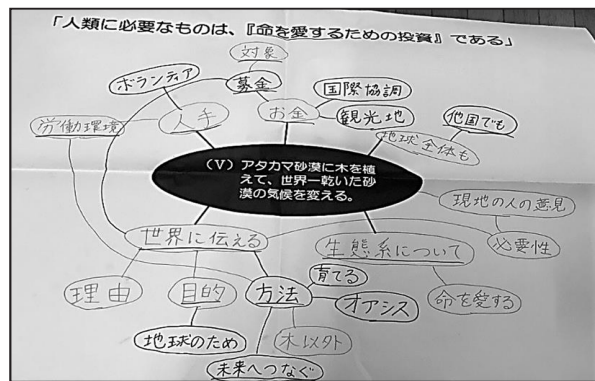 「人類に必要なものは、『命を愛するための投資』である」
対象
ボランティア
募金
国際協調
労働環境
人手
お金
観光地
他国でも
地球全体も
(V) アタカマ砂漠に木を植
えて、世界一乾いた砂
漠の気候を変える。
現地の人の意見
世界に伝える
生態系について
必要性
育てる
理由
目的
方法
オアシス
命を愛する
地球のため
木以外
未来へつなぐ